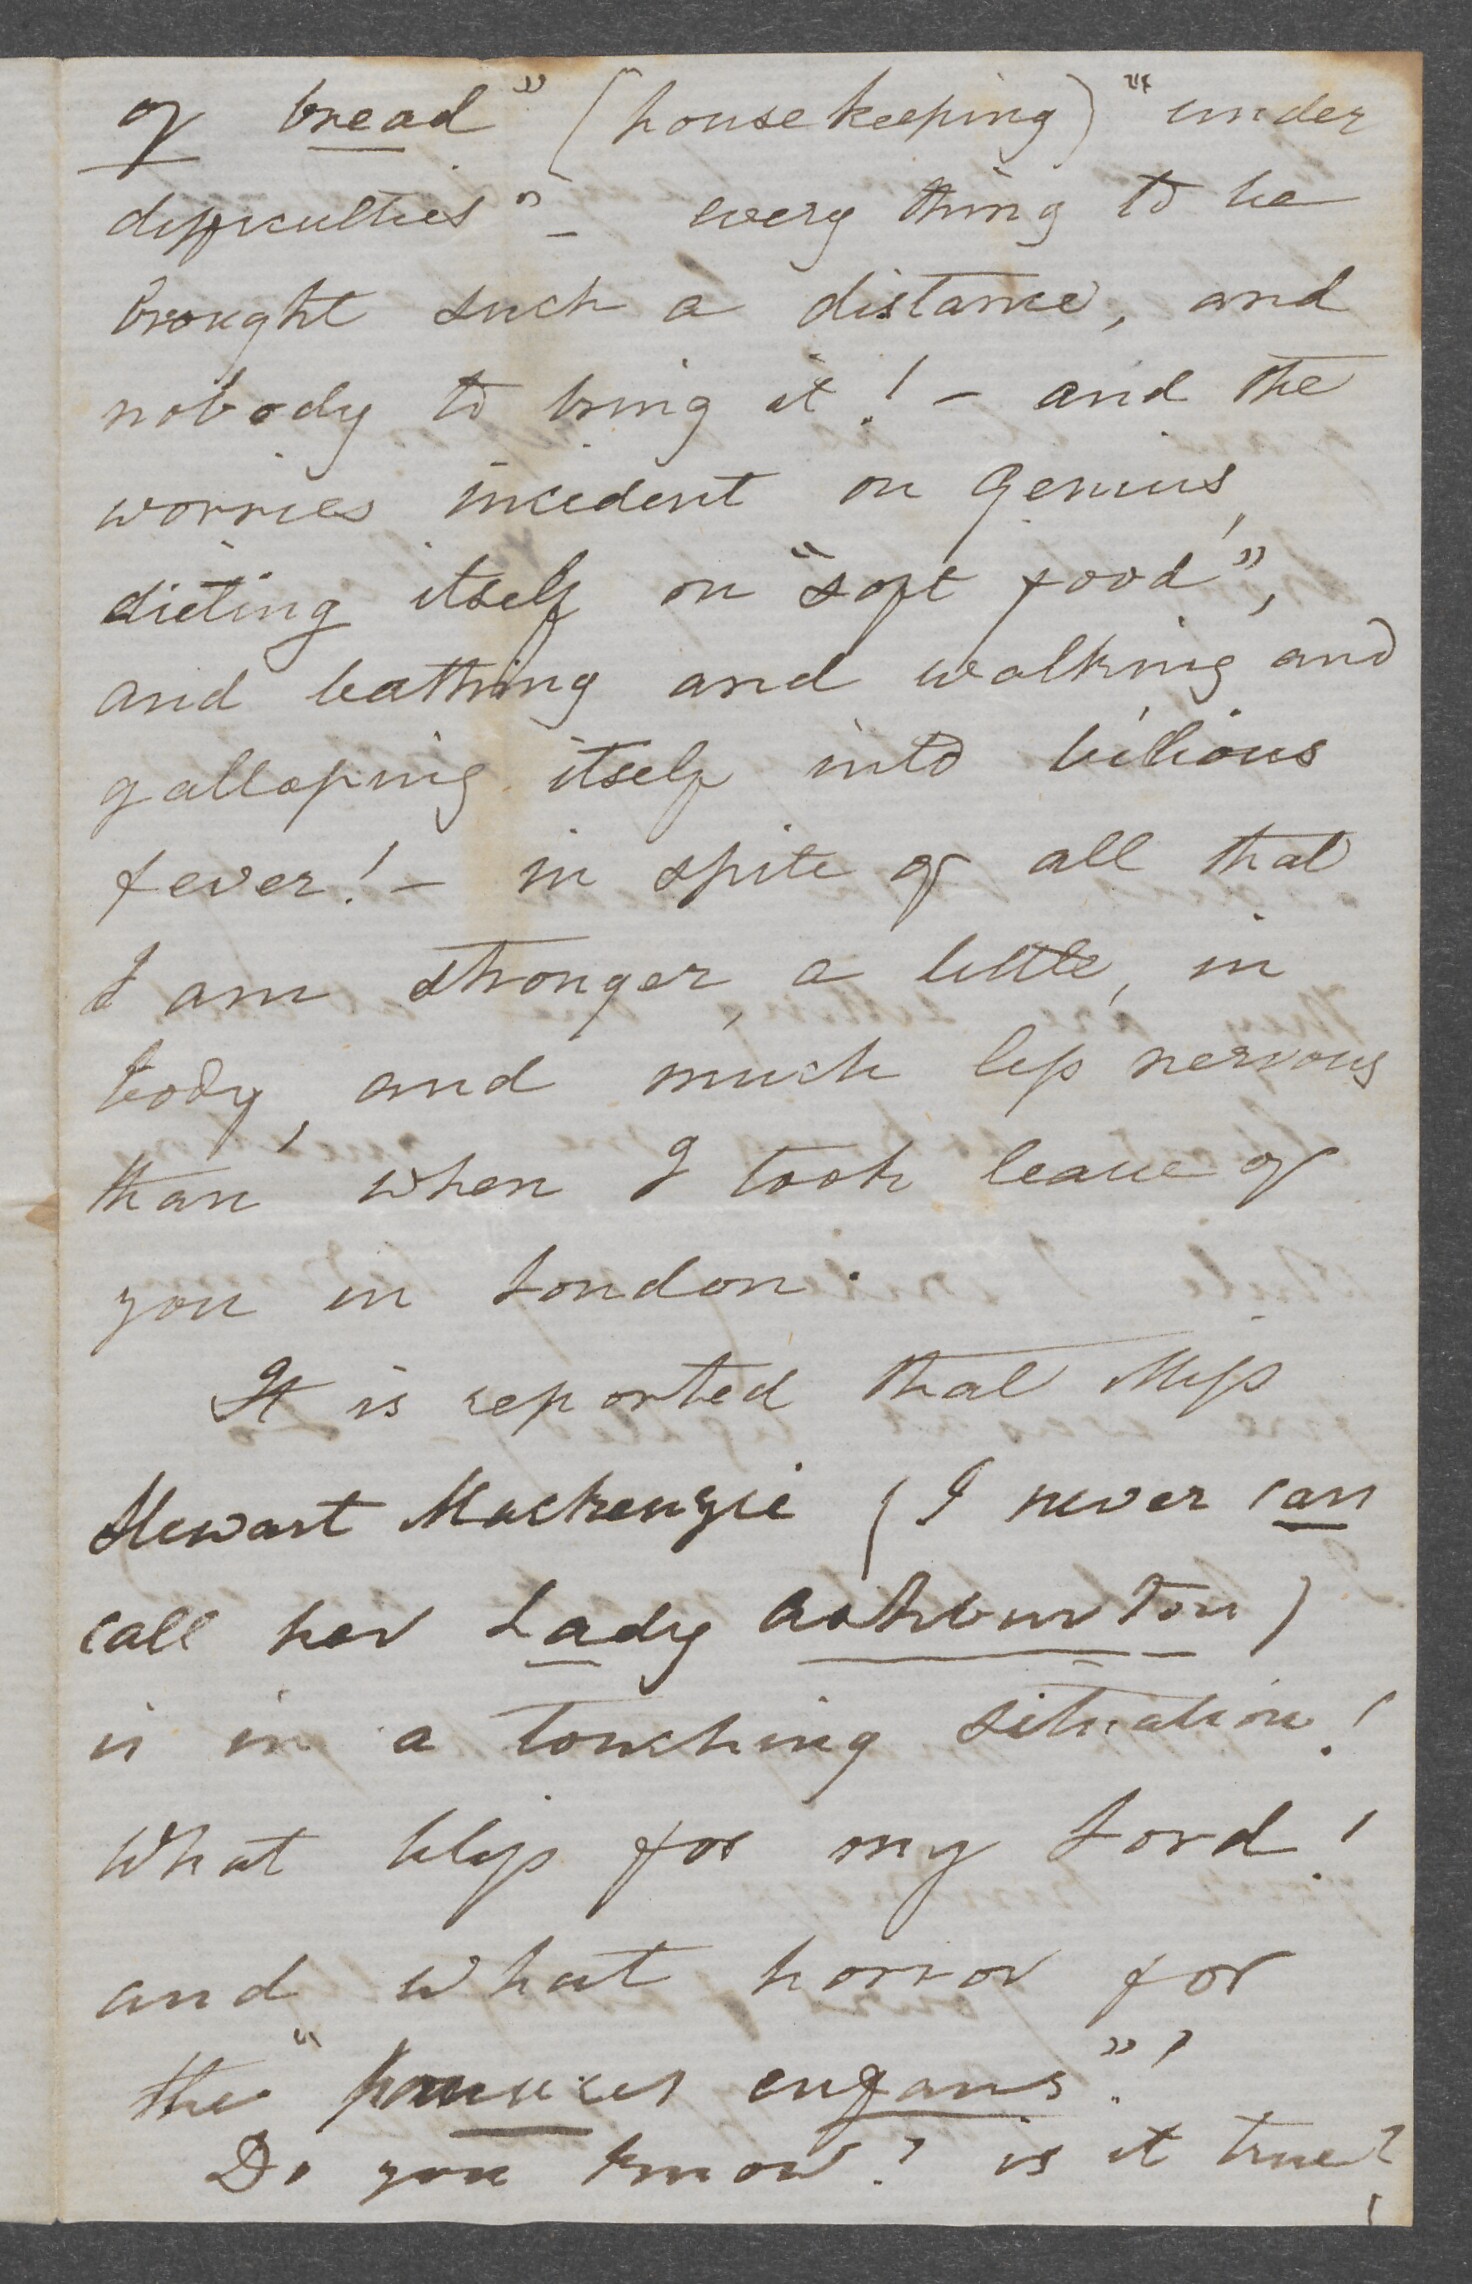 of bread" (housekeeping) "under
difficulties" – every thing to be
brought such a distance, and
nobody to bring it! – and the
worries incident on Genius,
dieting itself on "soft food",
and bathing and walking and
galloping itself into bilious
fever! – in spite of all that
I am stronger a little, in
body, and much less nervous
than when I took leave of
you in London.
It is reported that Miss
Stewart Mackenzie (I never can
call her Lady Ashburton)
is in a touching situation!
What bliss for my Lord!
and what horror for
the "pauvres enfans"!
Do you know? is it true?